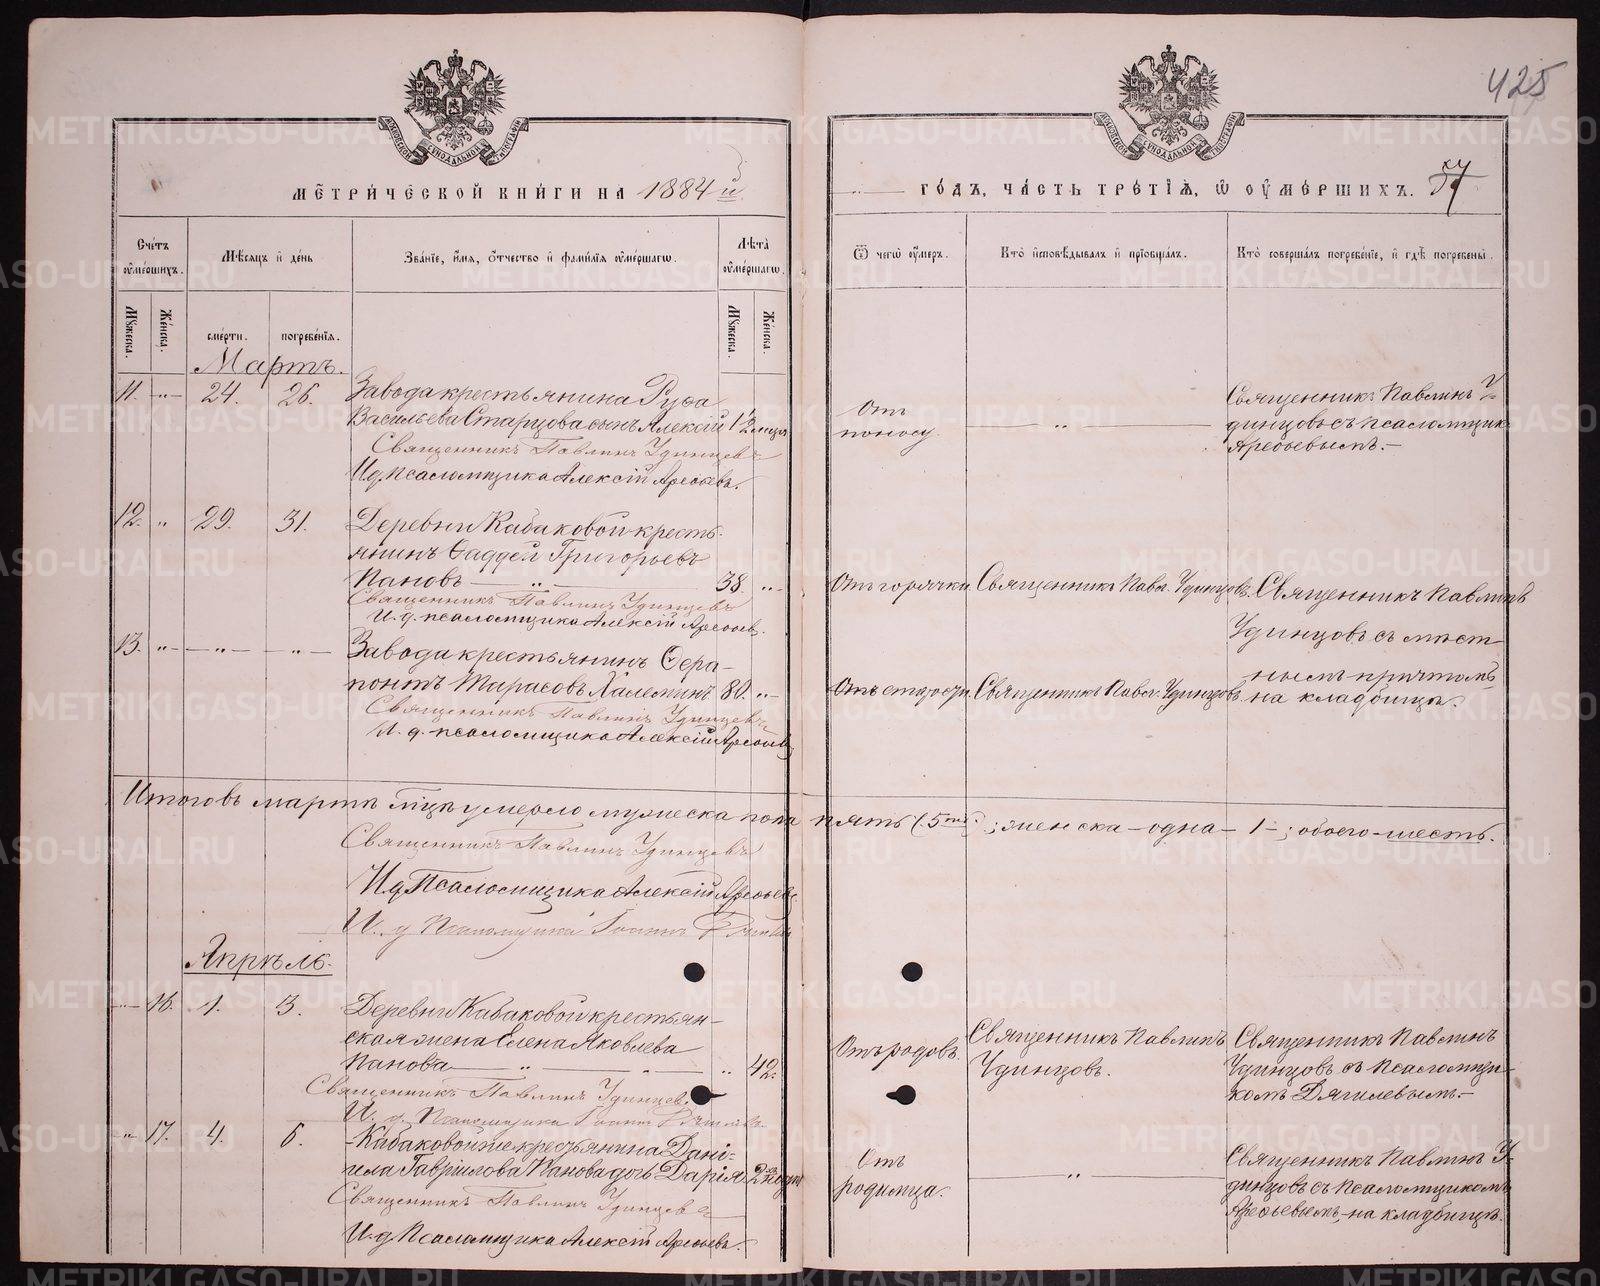 425
МЕТРИЧЕСКОЙ КНИГИ НА 1884 й
ГОДЪ, ЧАСТЬ ТРЕТІЯ, Ѿ ОУМЕРШИХЪ.
Счетъ оумершихъ.
Мѣсяцъ и день
Званіе, имя, отчество и фамилія оумершагѡ.
Лѣта оумершагѡ.
Ѿ чегѡ оумеръ.
Кто исповѣдывалъ и пріобщалъ.
Кто совершалъ погребеніе, и гдѣ погребены.
Мꙋжеска.
Женска.
смерти.
погребенія.
Мꙋжеска.
Женска.
Мартъ.
11. 24. 26. Завода крестьянина Руфа
Васильева Старцова сынъ Алексій 1½ мца
Священникъ Павлинъ Удинцевъ
И.д. Псаломщика Алексій Арефьевъ.
Отъ
поносу.
Священникъ Павлинъ У-
динцовъ съ псаломщик.
Арефьевымъ.-
12. " 29. 31. Деревни Кабаковой кресть-
янинъ Фаддей Григорьевъ
Пановъ — " — 38. "
Священникъ Павлинъ Удинцевъ
И. д. псаломщика Алексій Арефьев.
Отъ горячки. Священникъ Павл. Удинцовъ. Священникъ Павлинъ
Удинцовъ съ мѣст-
нымъ причтомъ
на кладбищѣ.
13. " " " Завода крестьянинъ Ѳера-
понтъ Тарасовъ Халеминъ 80. "
Священникъ Павлинъ Удинцевъ
И. д. псаломщика Алексій Арефьевъ
Отъ старости. Священникъ Павл. Удинцовъ
Итого въ мартѣ мцѣ умерло мужеска пола пять (5ть); женска - одна - 1 -; обоего - шесть.
Священникъ Павлинъ Удинцевъ
И.д. Псаломщика Алексій Арефьевъ
И. д Псаломщика Іоаннъ
Апрѣль.
16. 1. 3. Деревни Кабаковой крестьян-
ская жена Елена Яковлева
Панова — " — " 42.
Священникъ Павлинъ Удинцевъ
И. д. Псаломщика Іоаннъ
Отъ родовъ.
Священникъ Павлинъ
Удинцовъ.
Священникъ Павлинъ
Удинцовъ съ псаломщи-
комъ Дягилевымъ.-
" 17. 4. 6. -Кабаковой же крестьянина Дані-
ила Гавріилова Панова дочь Дарія.
Священникъ Павлинъ Удинцевъ
И.д. Псаломщика Алексій Арефьевъ.
Отъ
родимца.
Священникъ Павлинъ У-
динцовъ съ псаломщикомъ
Арефьевымъ, на кладбищѣ.
METRIKI.GASO-URAL.RU